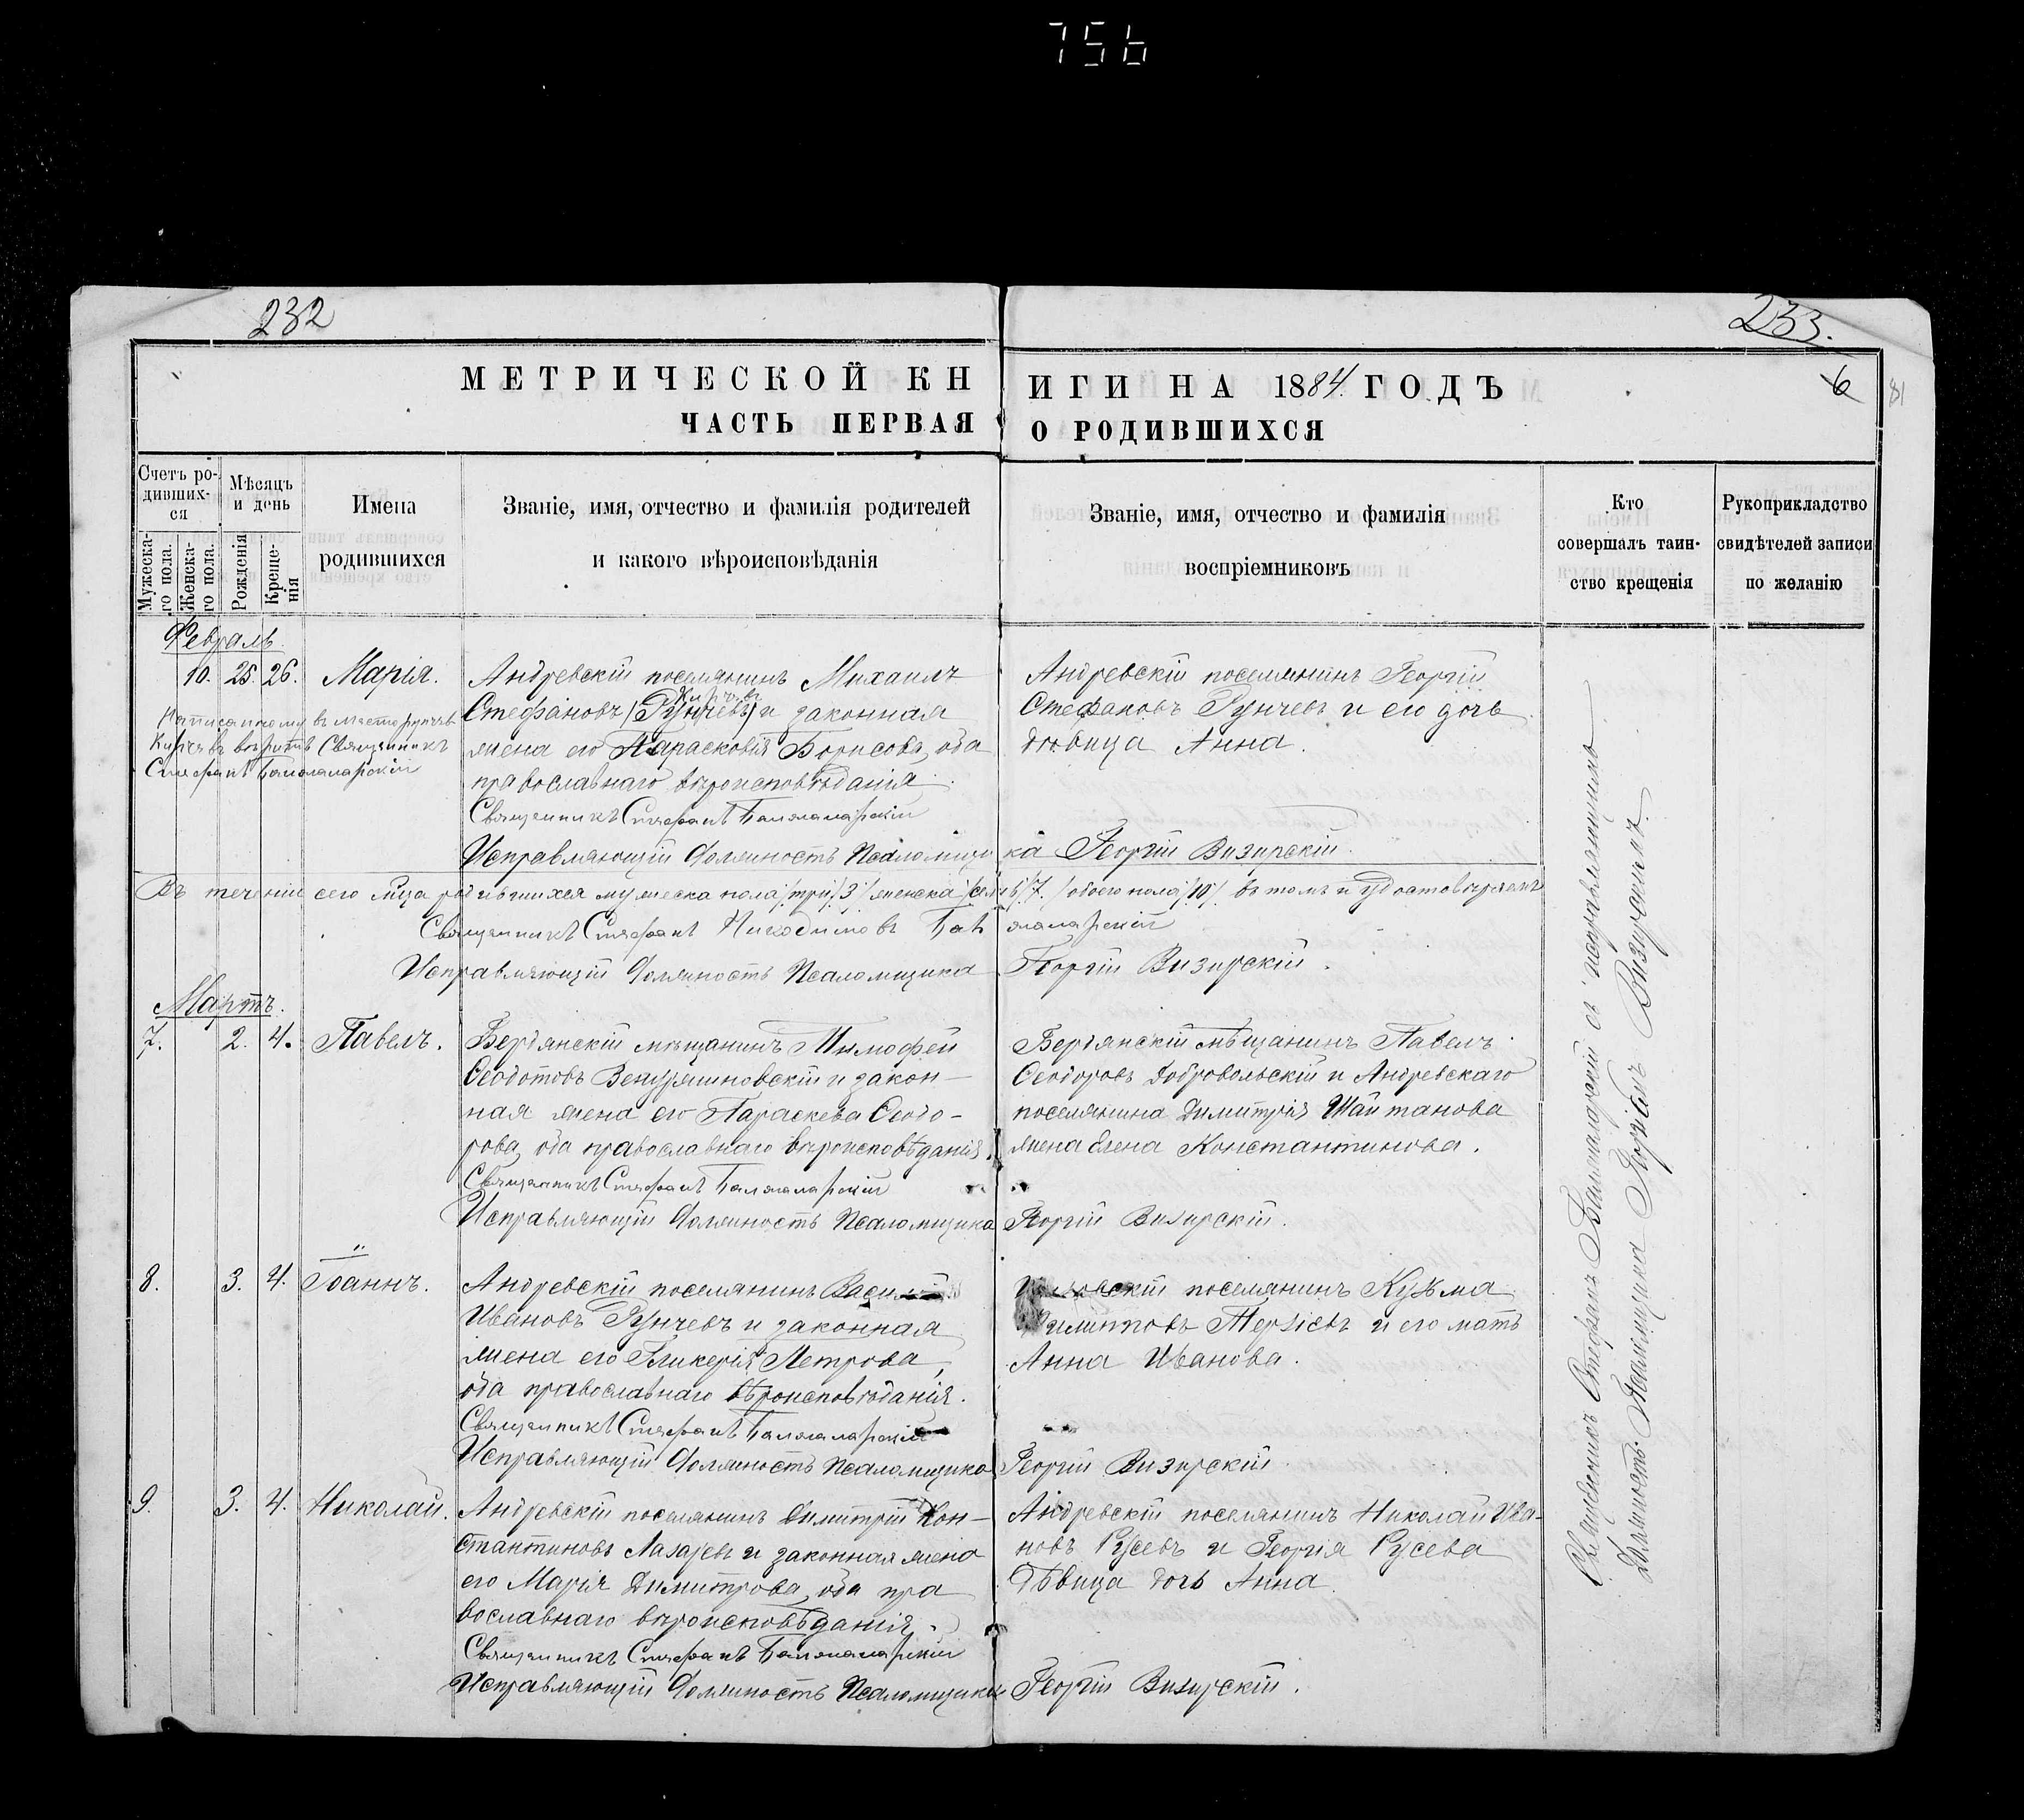 756
232
233.
6
81
МЕТРИЧЕСКОЙ КН
ИГИ НА 1884. ГОДЪ
ЧАСТЬ ПЕРВАЯ
О РОДИВШИХСЯ
Счетъ ро-
дивших-
ся
Мужеска-
го пола.
Женска-
го пола.
Мѣсяцъ
и день
Рожденія
Креще-
нія
Имена
родившихся
Званіе, имя, отчество и фамилія родителей
и какого вѣроисповѣданія
Званіе, имя, отчество и фамилія
воспріемниковъ
Кто
совершалъ таин-
ство крещенія
Рукоприкладство
свидѣтелей записи
по желанію
Февраль.
10. 25. 26. Марія.
Андревскій поселянинъ Михаилъ
Кирчевъ
Стефановъ (Рунчевъ) и законная
жена его Парасковія Борисова, оба
православнаго вѣроисповѣданія.
Священникъ Стефанъ
Исправляющій должность Псаломщи
Написанному вместо рунчевъ
Кирчевъ вѣрить Священникъ
Стефанъ
Андревскій поселянинъ Георгій
Стефановъ Рунчевъ и его дочь
дѣвица Анна.
ка Георгій Визирскій.
Въ теченіи сего м̃ца родившихся мужеска пола (три) 3) женска (семь) 7.) обоего пола (10) въ томъ и удостовѣряемъ
Священникъ Стефанъ Никодимовъ
Исправляющій должность Псаломщика Георгій Визирскій.
Мартъ.
7. 2. 4. Павелъ.
Бердянскій мѣщанинъ Тимофей
Ѳеодотовъ и закон-
ная жена его Параскева Ѳеодо-
рова, оба православнаго вѣроисповѣданія.
Священникъ Стефанъ
Исправляющій должность Псаломщика
Бердянскій мѣщанинъ Павелъ
Ѳеодоровъ Добровольскій и Андревскаго
поселянина Димитрія Шайтанова
жена Елена Константинова.
Георгій Визирскій.
"
8. 3. 4. Іоаннъ.
Андревскій поселянинъ Василій
Ивановъ Рунчевъ и законная
жена его Гликерія Петрова,
оба православнаго вѣроисповѣданія.
Священникъ Стефанъ
Исправляющій должность Псаломщика
поселянинъ Кузьма
Терзіевъ и его мать
Анна Иванова.
Георгій Визирскій.
9. 3. 4. Николай.
Андревскій поселянинъ Димитрій Кон-
стантиновъ Лазаревъ и законная жена
его Марія Димитрова, оба пра
вославнаго вѣроисповѣданія.
Священникъ Стефанъ
Исправляющій должность Псаломщика
Андревскій поселянинъ Николай Ива-
новъ Русевъ и Георгія Русева
дѣвица дочь Анна.
Георгій Визирскій.
Священникъ Стефанъ съ исправляющимъ
должность Псаломщика Георгіемъ Визирскимъ.